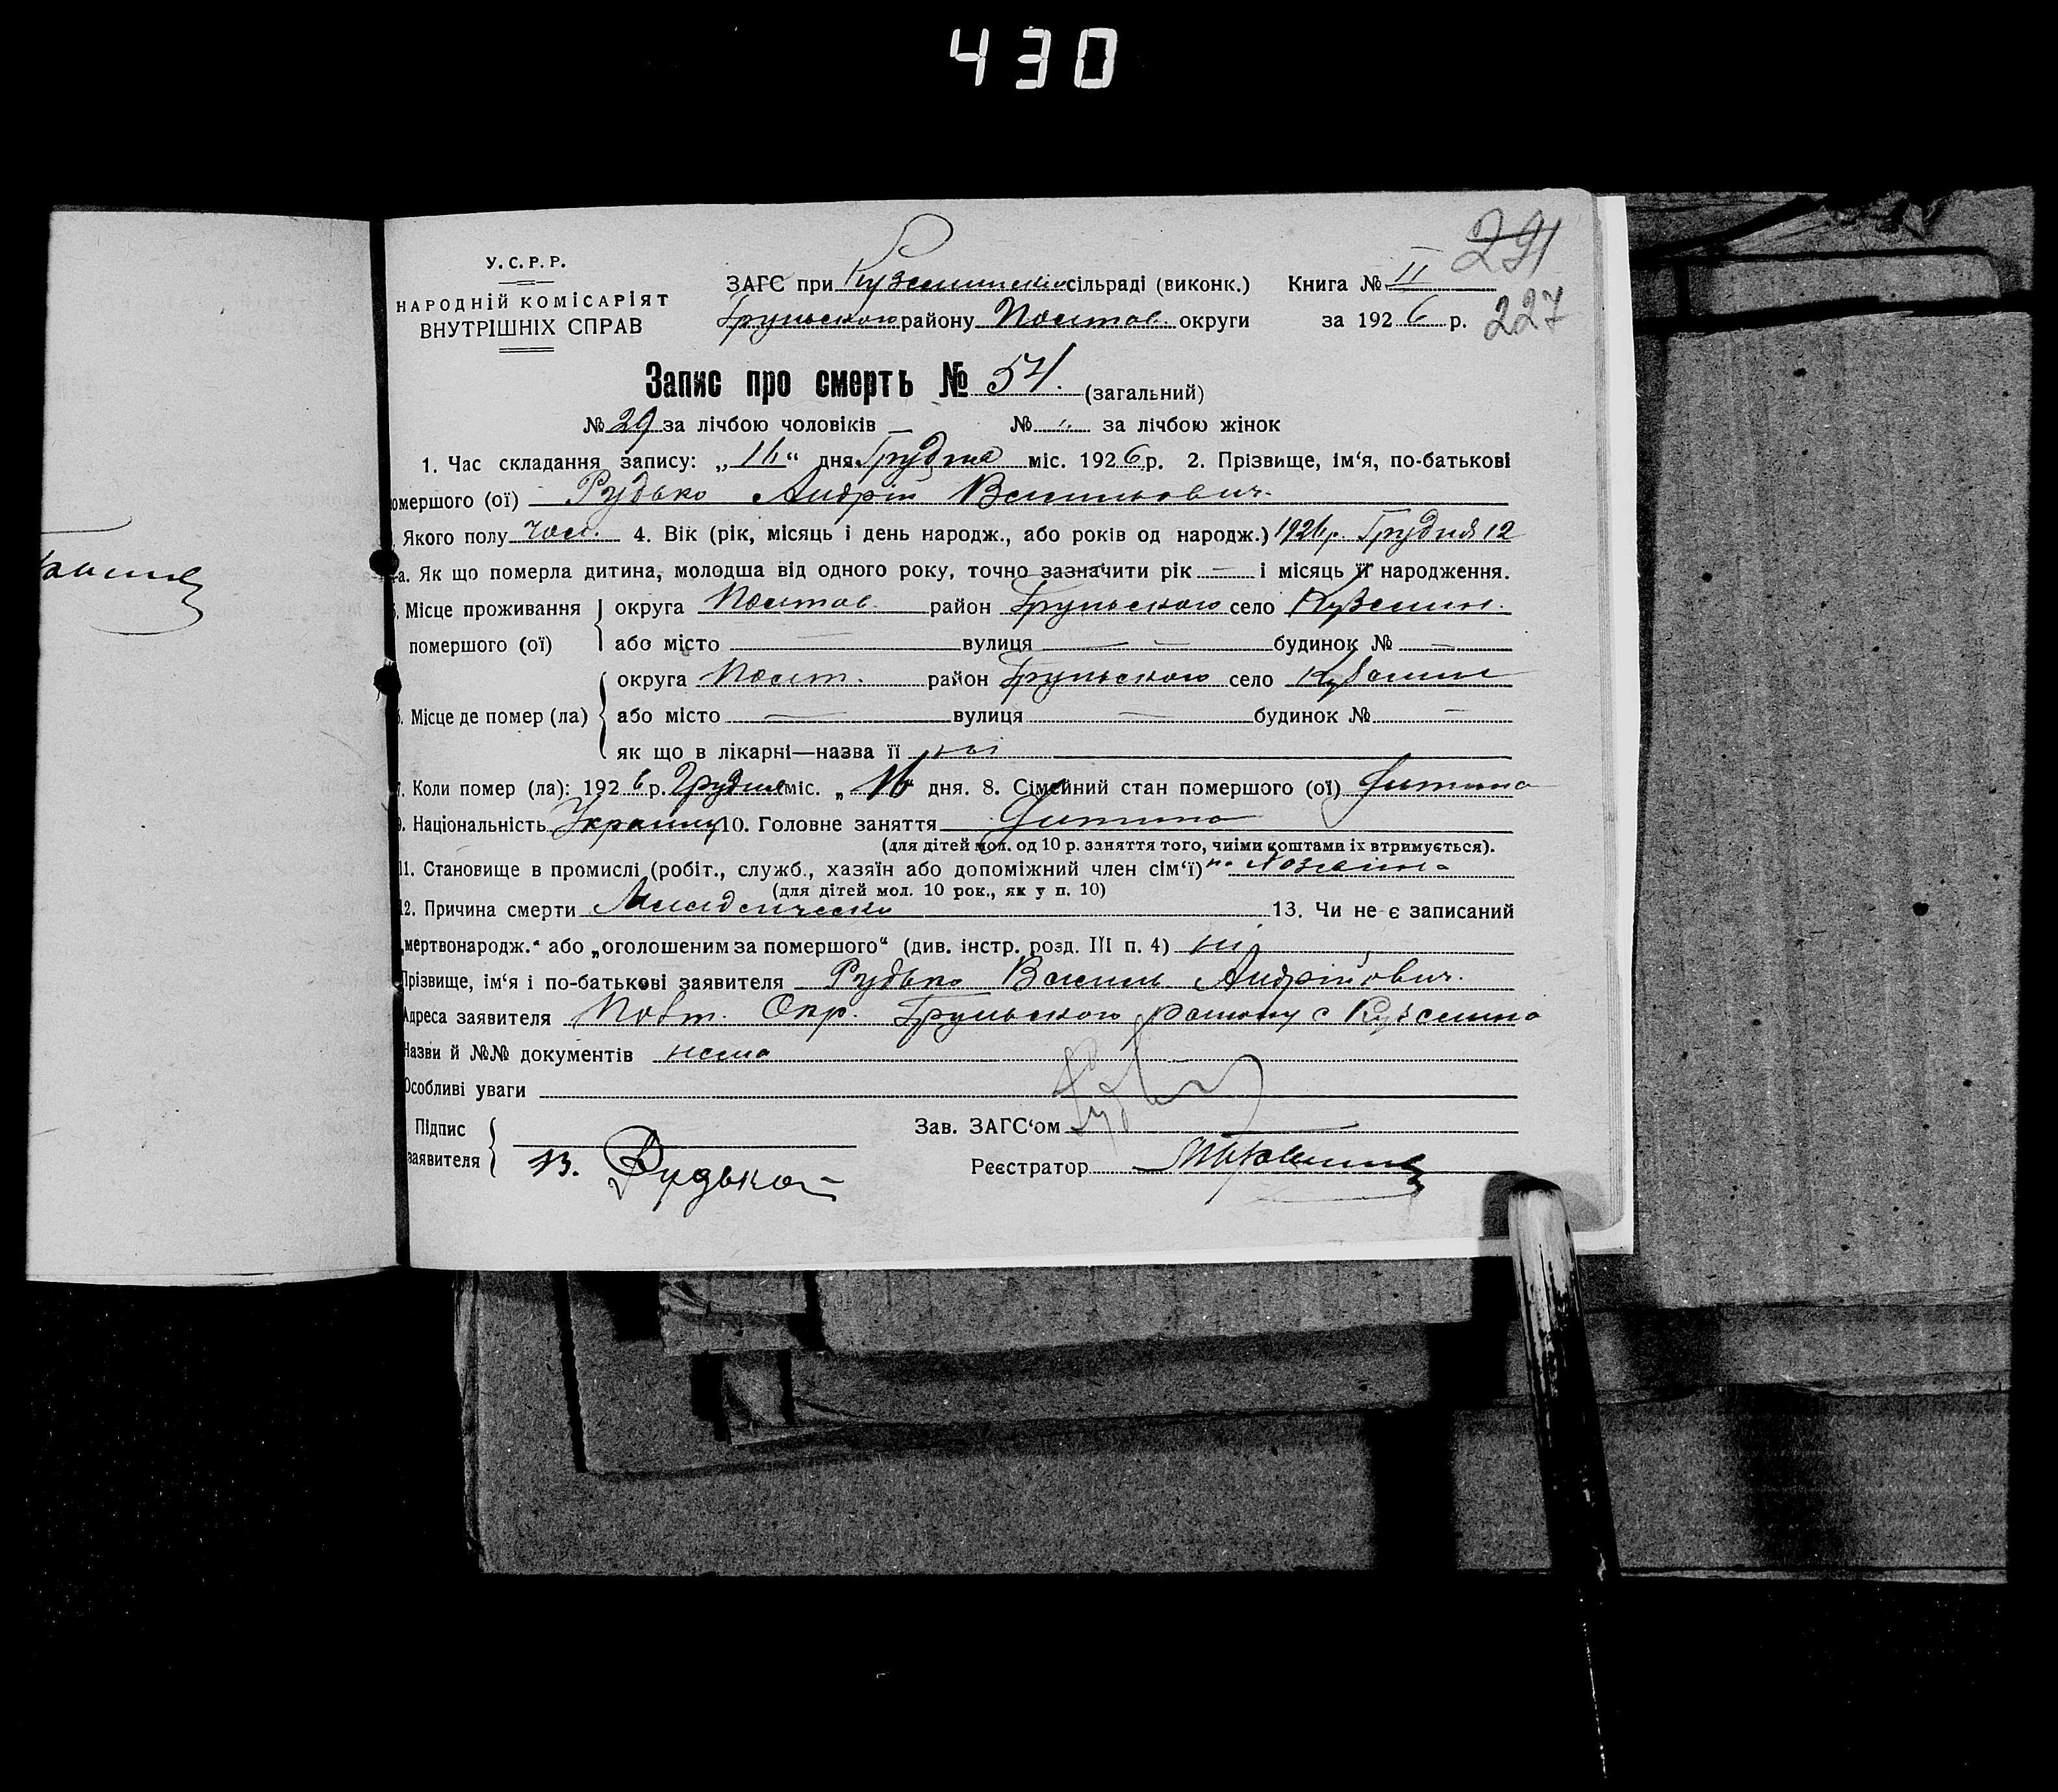 430
291
У.С.Р.Р.
НАРОДНІЙ КОМІСАРІЯТ
ВНУТРІШНІХ СПРАВ
ЗАГС при сільраді (виконк.) Книга № II
Грунського району Полтав. округи за 1926 р. 227
Запис про смерть № 54. (загальний)
№ 29 за лічбою чоловіків № " за лічбою жінок
1. Час складання запису: „16“ дня Грудня міс. 1926 р. 2. Прізвище, ім‘я, по-батькові
омершого (ої) Рудько Андрій Васильович.
Якого полу чол. 4. Вік (рік, місяць і день народж., або років од народж.) 1926 р. Грудня 12
а. Як що померла дитина, молодша від одного року, точно зазначити рік — і місяць її народження.
Місце проживання округа Полтав. район Грунського село Куземин.
помершого (ої) або місто — вулиця — — будинок № —
округа Полт. район Грунського село Куземин
Місце де помер (ла) або місто — вулиця — будинок № —
як що в лікарні—назва її ні
7. Коли помер (ла): 1926 р. Грудня міс. „16 дня. 8. Сімейний стан помершого (ої) Дитина
9. Національність 10. Головне заняття Дитина
(для дітей мол. од 10 р. заняття того, чиїми коштами їх втримується).
11. Становище в промислі (робіт., служб., хазяїн або допоміжний член сім‘ї)
(для дітей мол. 10 рок., як у п. 10)
12. Причина смерти 13. Чи не є записаний
„мертвонародж.“ або „оголошеним за помершого“ (див. інстр. розд. III п. 4) ні
Прізвище, ім‘я і по-батькові заявителя Рудько Василь Андрійович.
Адреса заявителя Полт. Окр. Грунського району с Куземина
Назви й №№ документів нема
Особливі уваги
Підпис Зав. ЗАГС‘ом
заявителя В. Рудько Реєстратор